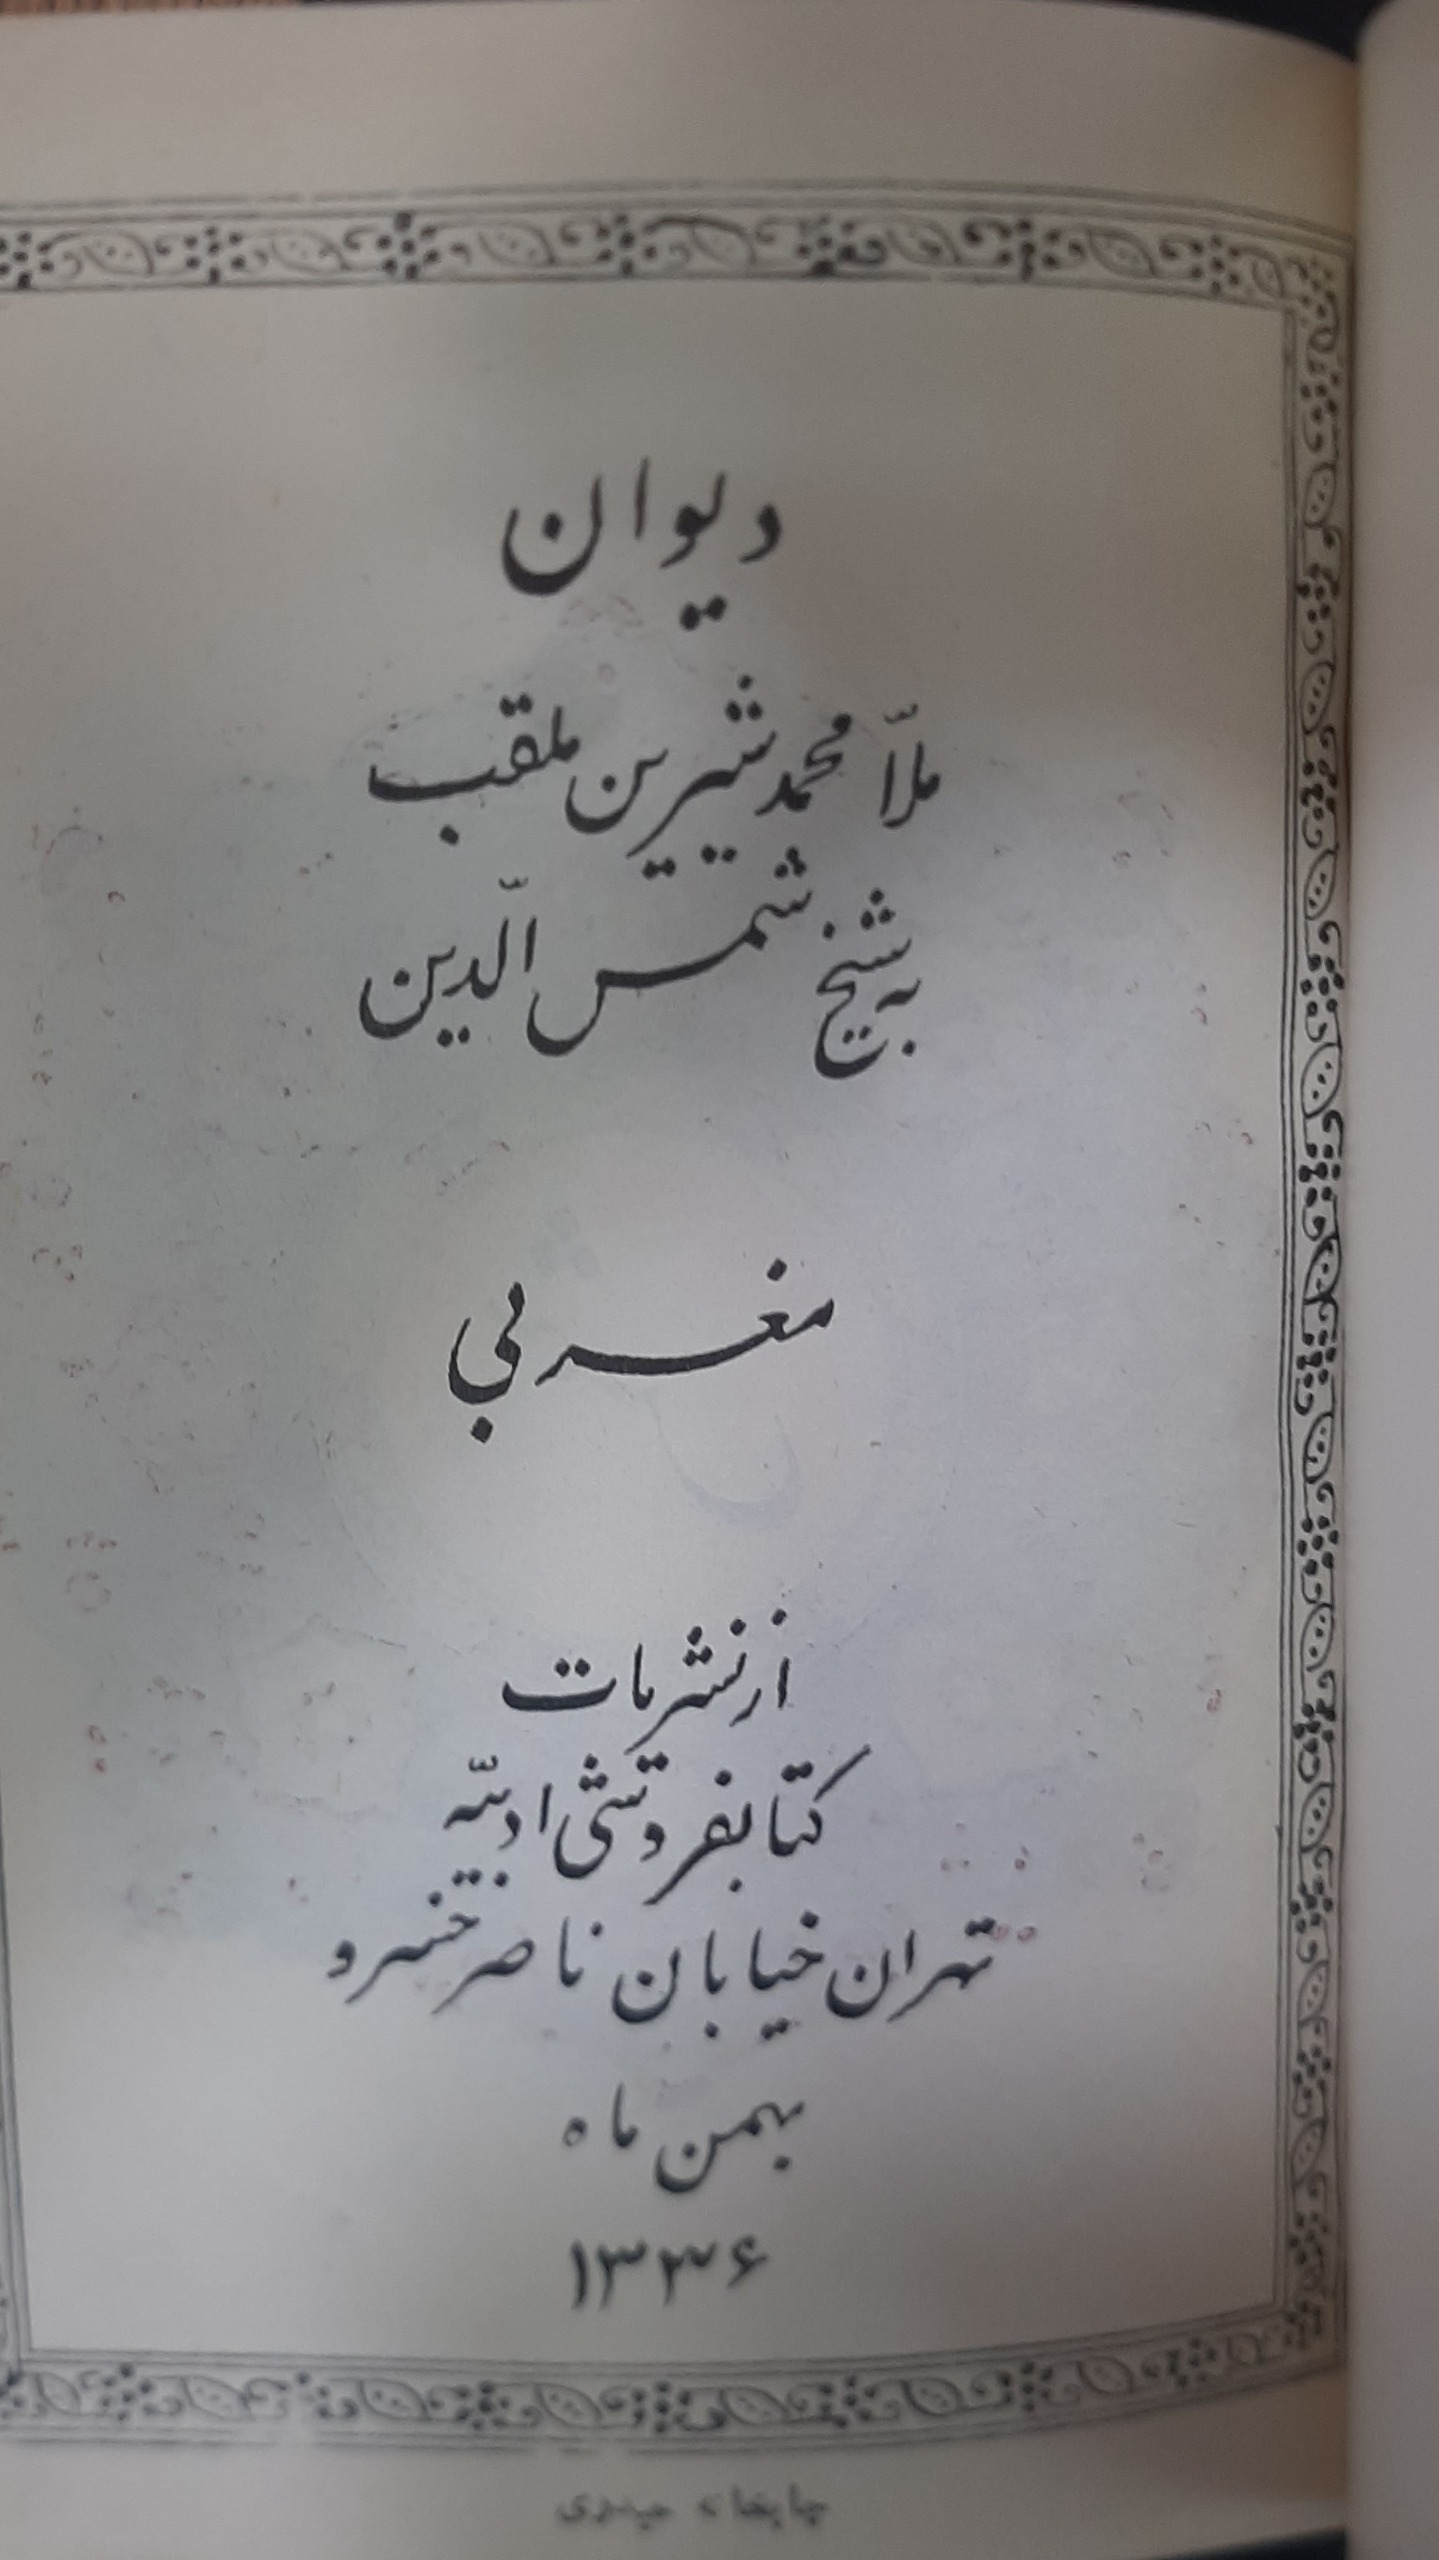 دیوان
ملاّ محمد شیرین ملقب
به شیخ شمس الّدین
مغربی
از نشریات
کتابفروشی ادبیّه
تهران خیابان ناصر خسرو
بهمن ماه
۱۳۳۶
چاپخانه حیدری